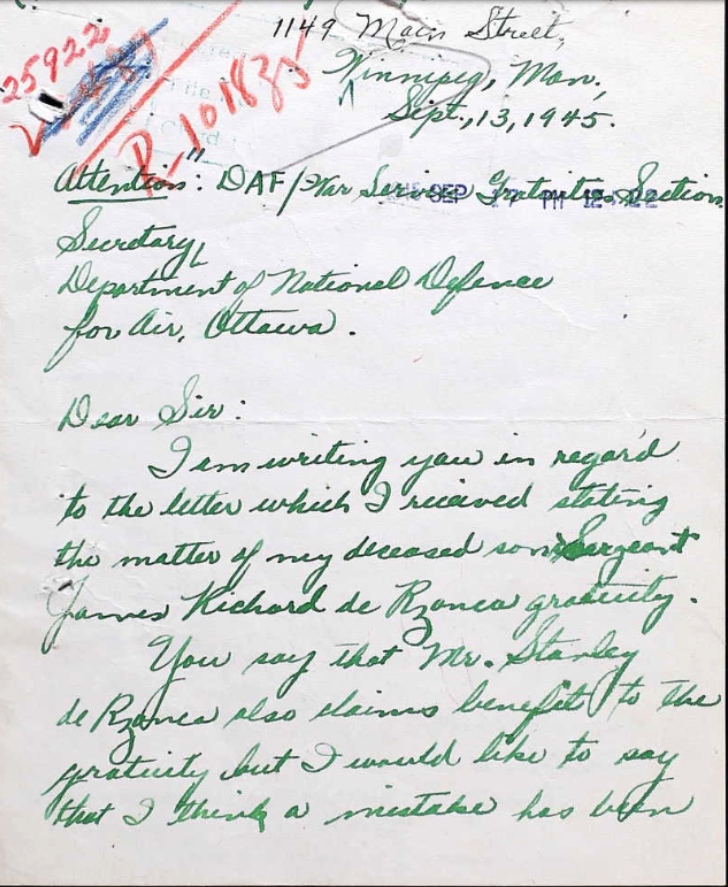 1149 Main Street,
Winnipeg, Man.,
Sept., 13, 1945.
25922
R-101835
Attention": DAF/War Service Gratuities Section
SEP 17 PM 12
Secretary,
Department of National Defence
for Air, Ottawa.
Dear Sir:
I am writing you in regard
to the letter which I received stating
the matter of my deceased son's Sergeant
James Richard de Rzonca gratuity.
You say that Mr. Stanley
de Rzonca also claims benefit to the
gratuity but I would like to say
that I think a mistake has been